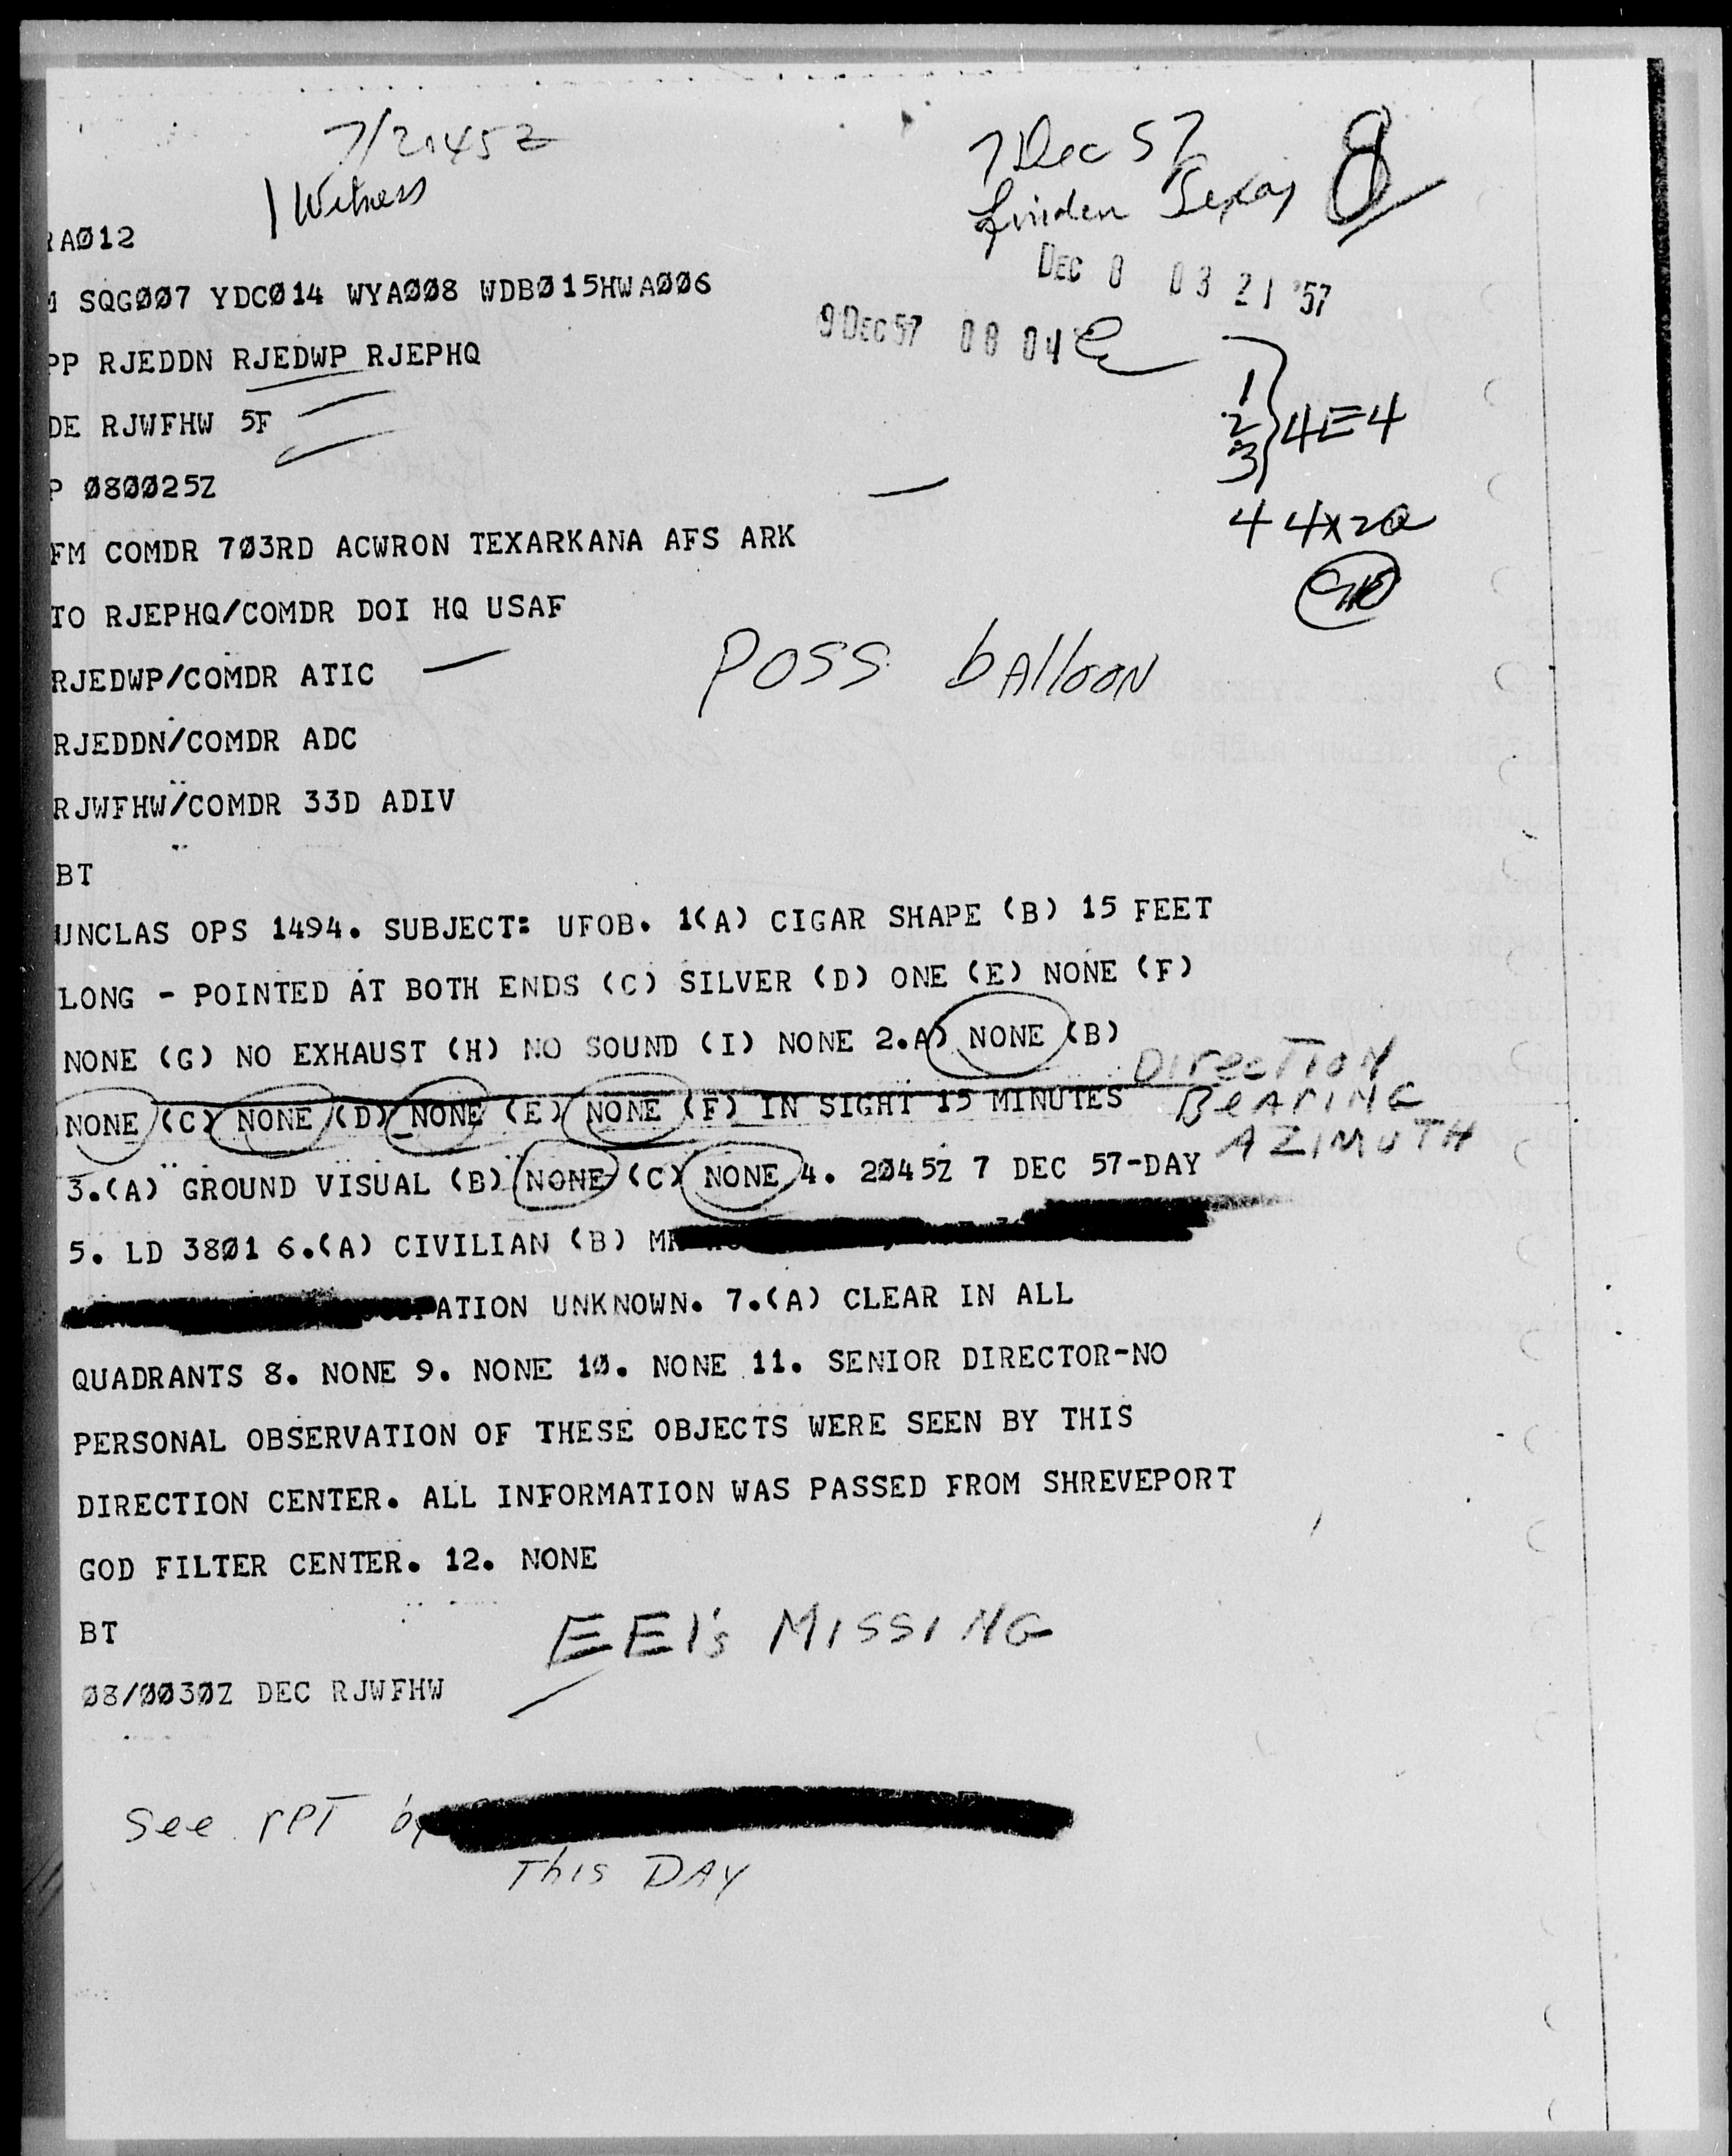 7/2045Z
1 Witness
7 Dec 57
Linden Texas 8
RA012
SQG007 YDC014 WYA008 WDB015HWA006
DEC 8 03 21 '57
9 DEC 57 08 04
PP RJEDDN RJEDWP RJEPHQ
DE RJWFHW 5F
1
2
3 } 4E4
P 080025Z
4 4X2a
FM COMDR 703RD ACWRON TEXARKANA AFS ARK
TO RJEPHQ/COMDR DOI HQ USAF
RJEDWP/COMDR ATIC
POSS bAlloON
RJEDDN/COMDR ADC
RJWFHW/COMDR 33D ADIV
BT
UNCLAS OPS 1494. SUBJECT: UFOB. 1(A) CIGAR SHAPE (B) 15 FEET
LONG - POINTED AT BOTH ENDS (C) SILVER (D) ONE (E) NONE (F)
NONE (G) NO EXHAUST (H) NO SOUND (I) NONE 2.A) NONE (B)
NONE (C) NONE (D) NONE (E) NONE (F) IN SIGHT 15 MINUTES
DirecTION
BeARING
AZIMUTH
3.(A) GROUND VISUAL (B) NONE (C) NONE 4. 2045Z 7 DEC 57-DAY
5. LD 3801 6.(A) CIVILIAN (B) MR
PATION UNKNOWN. 7.(A) CLEAR IN ALL
QUADRANTS 8. NONE 9. NONE 10. NONE 11. SENIOR DIRECTOR-NO
PERSONAL OBSERVATION OF THESE OBJECTS WERE SEEN BY THIS
DIRECTION CENTER. ALL INFORMATION WAS PASSED FROM SHREVEPORT
GOD FILTER CENTER. 12. NONE
BT
EEI's MISSING
08/0030Z DEC RJWFHW
See rPT by
This DAY